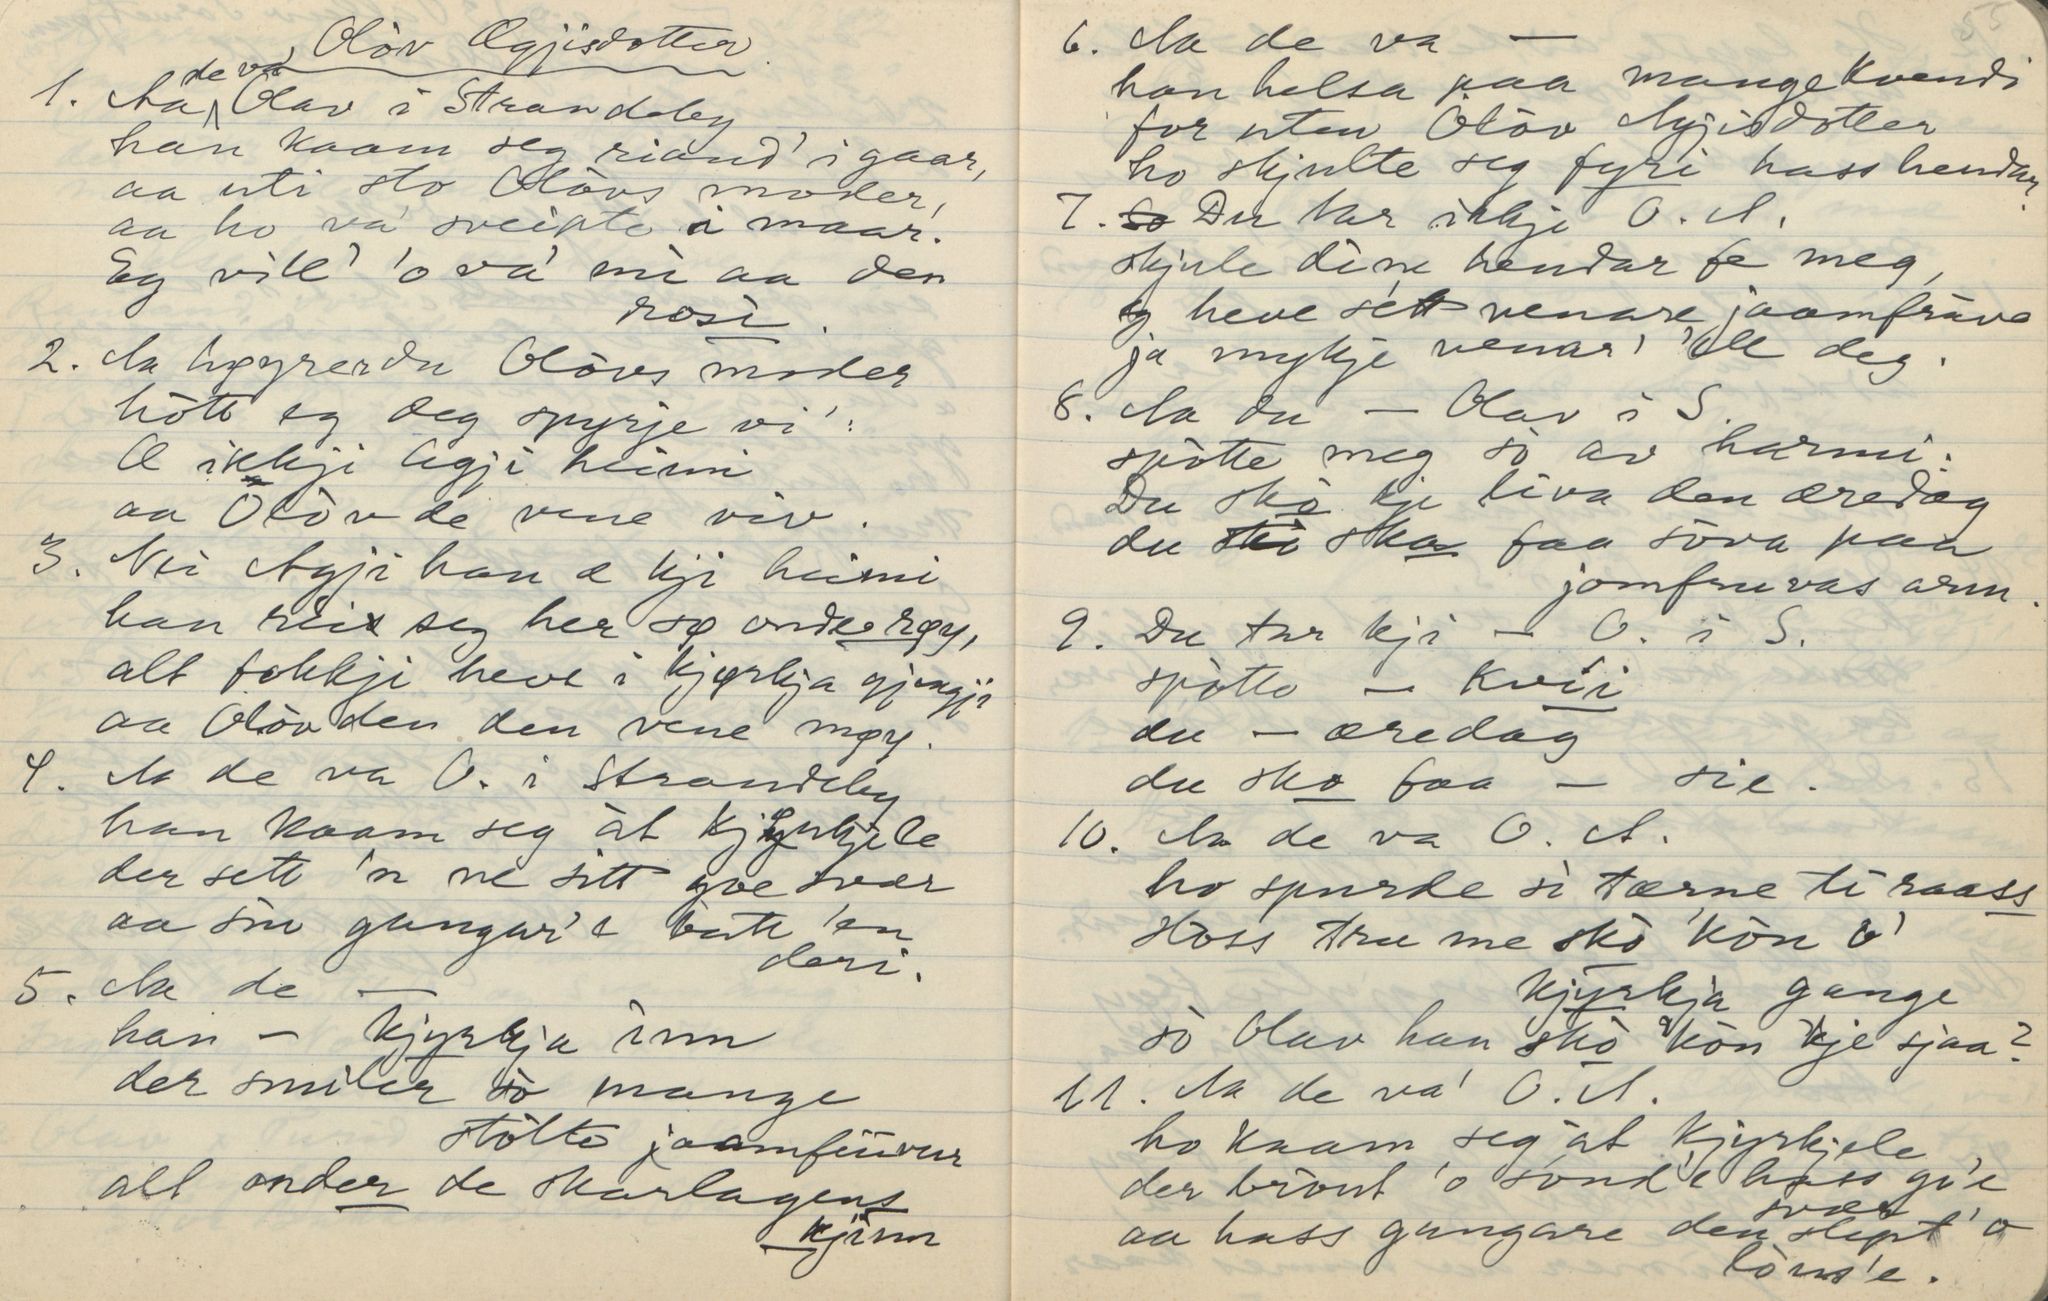 Olòv Ægjisdotter.
1. Aa de va Olav i Strandeby
han kaam seg riand' i gaar,
aa uti sto Olòvs moder,
aa ho va' sveipte i maar.
Eg vill' 'o va' mi aa den
rosi.
2. Aa høyrerdu Olòvs moder
hòtt eg deg spyrje vi':
Æ ikkji Agji heimi
aa Olòv de vene viv.
3. Nei Agji han æ kji heimi
han reis seg her sø ondeərøy,
alt fokkji heve i kjørkja gjengji
aa Olòv den den vene møy.
4. Aa de va O. i Strandeby
han kaam seg àt kjyrkjele
der sett 'n ne sitt goe svær
aa sin gangar'e batt 'en
deri.
5. Aa de —
han — kjyrkja inn
der smiler sò mange
stòlte jaamfrüvur
alt onder de skarlagens
kjinn
55
6. Aa de va —
han helsa paa mange kvendi
for uten Olòv Agjisdotter
ho skjulte seg fyri hass hendar.
7. So Du tar ikkje O. A.
skjule dine hendar fe meg,
eg heve sett venare jaamfrüve
ja mykje venar' 'ell deg.
8. Aa du — Olav i S.
spòtte meg sò av harmi:
Du skò kje liva den æredag
du skò ska faa sòva paa
jomfruvas arm.
9. Du tar kji — O. i S.
spòtte — kvii
du — æredag
du sko faa — sie.
10. Aa de va O. A.
ho spurde si tærne ti raass
Hòss tru me skò kòn ò'
kjyrkja gange
sò Olav han skò kòn kje sjaa?
11. Aa de va' O. A.
ho kaam seg àt kjyrkjele
der bròut 'o sond'e hass go'e
svær
aa hass gangare den slept 'o
lòus'e.